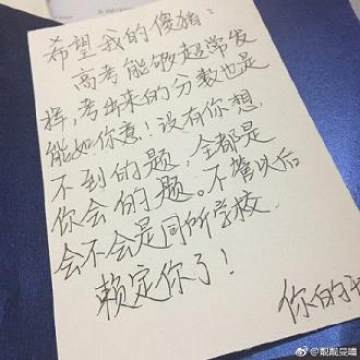 希望我的傻猪:
高考能够超常发
挥,考出来的分数也是
能如你意!没有你想
不到的题,全都是
你会的题。不管以后
会不会是同所学校
赖定你了!
你的